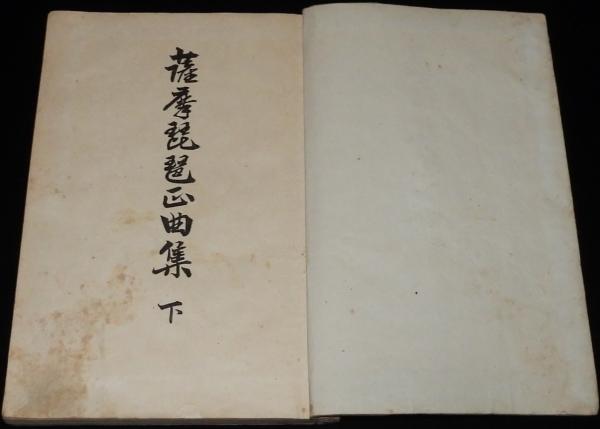 薩摩琵琶正曲集 下